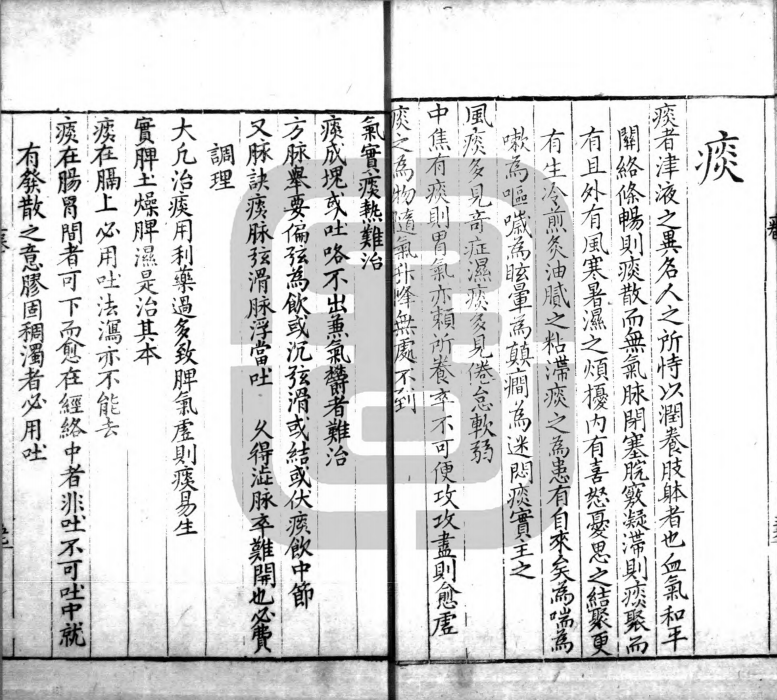 痰
痰者津液之異名人之所恃以潤養肢躰者也血氣和平
關絡條暢則痰散而無氣脉閉塞脘竅凝滯則痰聚而
有且外有風寒暑濕之煩擾內有喜怒憂思之結聚更
有生冷煎炙油膩之粘滯痰之為患有自來矣為喘為
嗽為嘔
為眩暈為顛癇為迷悶痰實主之
風痰多見奇症濕痰多見倦怠軟弱
中焦有痰則胃氣亦賴所養卒不可便攻攻盡則愈虛
痰之為物隨氣升降無處不到
氣實痰熱難治
痰成塊或吐咯不出兼氣欝者難治
方脉舉要偏弦為飲或沉弦滑或結或伏痰飲中節
又脉訣痰脉弦滑脉浮當吐 久得澁脉卒難開也必費
調理
大凢治痰用利藥過多致脾氣虛則痰易生
實脾土燥脾濕是治其本
痰在膈上必用吐法瀉亦不能去
痰在腸胃間者可下而愈在經絡中者非吐不可吐中就
有發散之意膠固稠濁者必用吐